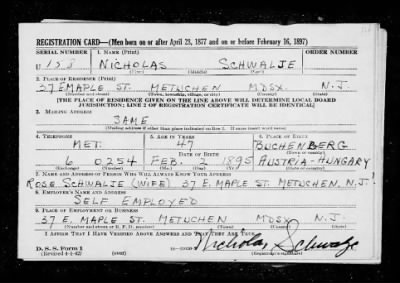 REGISTRATION CARD—(Men born on or after April 28, 1877 and on or before February 16, 1897)
SERIAL NUMBER 1. NAME (Print) ORDER NUMBER
U NICHOLAS SCHWALJE
(First) (Middle) (Last)
2. PLACE OF RESIDENCE (Print)
37 E MAPLE ST. METUCHEN MDSX. N.J.
(Number and street) (Town, township, village, or city) (County) (State)
[THE PLACE OF RESIDENCE GIVEN ON THE LINE ABOVE WILL DETERMINE LOCAL BOARD
JURISDICTION; LINE 2 OF REGISTRATION CERTIFICATE WILL BE IDENTICAL]
3. MAILING ADDRESS
SAME
(Mailing address if other than place indicated on line 2. If same insert word same)
4. TELEPHONE 5. AGE IN YEARS 6. PLACE OF BIRTH
MET. 47 BUCHENBERG
DATE OF BIRTH (Town or county)
6 0254 FEB. 2 1895 AUSTRIA-HUNGARY
(Exchange) (Number) (Mo.) (Day) (Yr.) (State or country)
7. NAME AND ADDRESS OF PERSON WHO WILL ALWAYS KNOW YOUR ADDRESS
ROSE SCHWALJE (WIFE) 37 E. MAPLE ST. METUCHEN, N.J.
8. EMPLOYER'S NAME AND ADDRESS
SELF EMPLOYED
9. PLACE OF EMPLOYMENT OR BUSINESS
37 E. MAPLE ST. METUCHEN MDSX N.J.
(Number and street or R. F. D. number) (Town) (County) (State)
I AFFIRM THAT I HAVE VERIFIED ABOVE ANSWERS AND THAT THEY ARE TRUE.
D. S. S. Form 1
(Revised 4-1-42) (over) Nicholas Schwalje